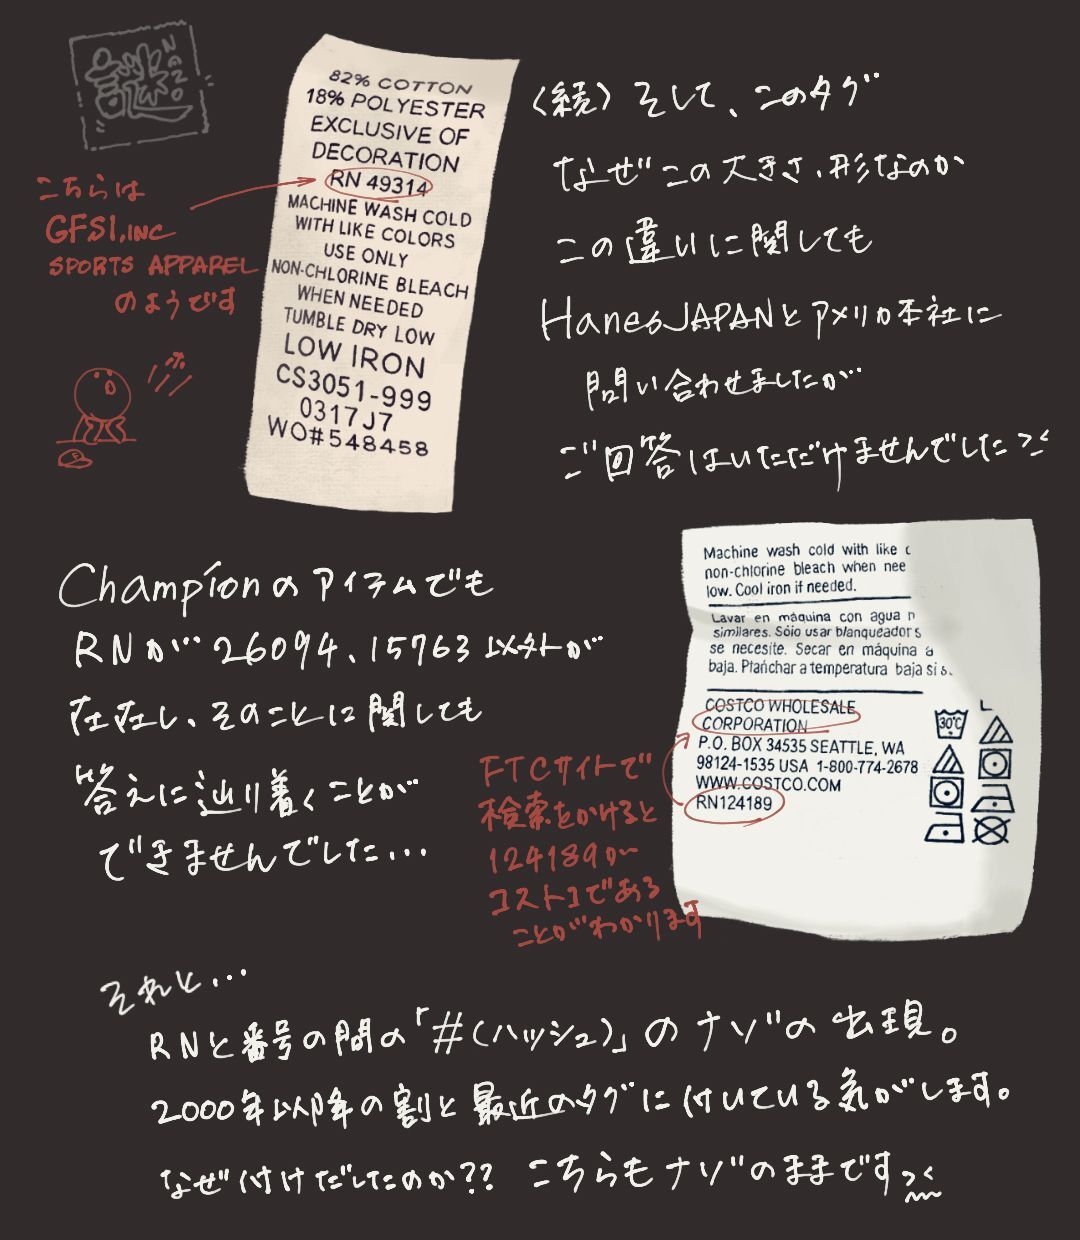 謎
NAZO
82% COTTON
18% POLYESTER
EXCLUSIVE OF
DECORATION
RN 49314
MACHINE WASH COLD
WITH LIKE COLORS
USE ONLY
NON-CHLORINE BLEACH
WHEN NEEDED
TUMBLE DRY LOW
LOW IRON
CS3051-999
0317J7
WO#548458
こちらは
GFSI,INC
SPORTS APPAREL
のようです
〈続〉そして、このタグ
なぜこの大きさ、形なのか
この違いに関しても
HanesJAPANとアメリカ本社に
問い合わせましたが
ご回答はいただけませんでした
Championのアイテムでも
RNが26094、15763以外が
存在し、そのことに関しても
答えに辿り着くことが
できませんでした...
Machine wash cold with like c
non-chlorine bleach when nee
low. Cool iron if needed.
Lavar en máquina con agua
similares. Sólo usar blanqueador s
se necesite. Secar en máquina a
baja. Planchar a temperatura baja si s
COSTCO WHOLESALE
CORPORATION
P.O. BOX 34535 SEATTLE, WA
98124-1535 USA 1-800-774-2678
WWW.COSTCO.COM
RN124189
30°C
FTCサイトで
検索をかけると
124189が
コストコである
ことがわかります
それと...
RNと番号の間の「#(ハッシュ)」のナゾの出現。
2000年以降の割と最近のタグに付いている気がします。
なぜ付けだしたのか?? こちらもナゾのままです